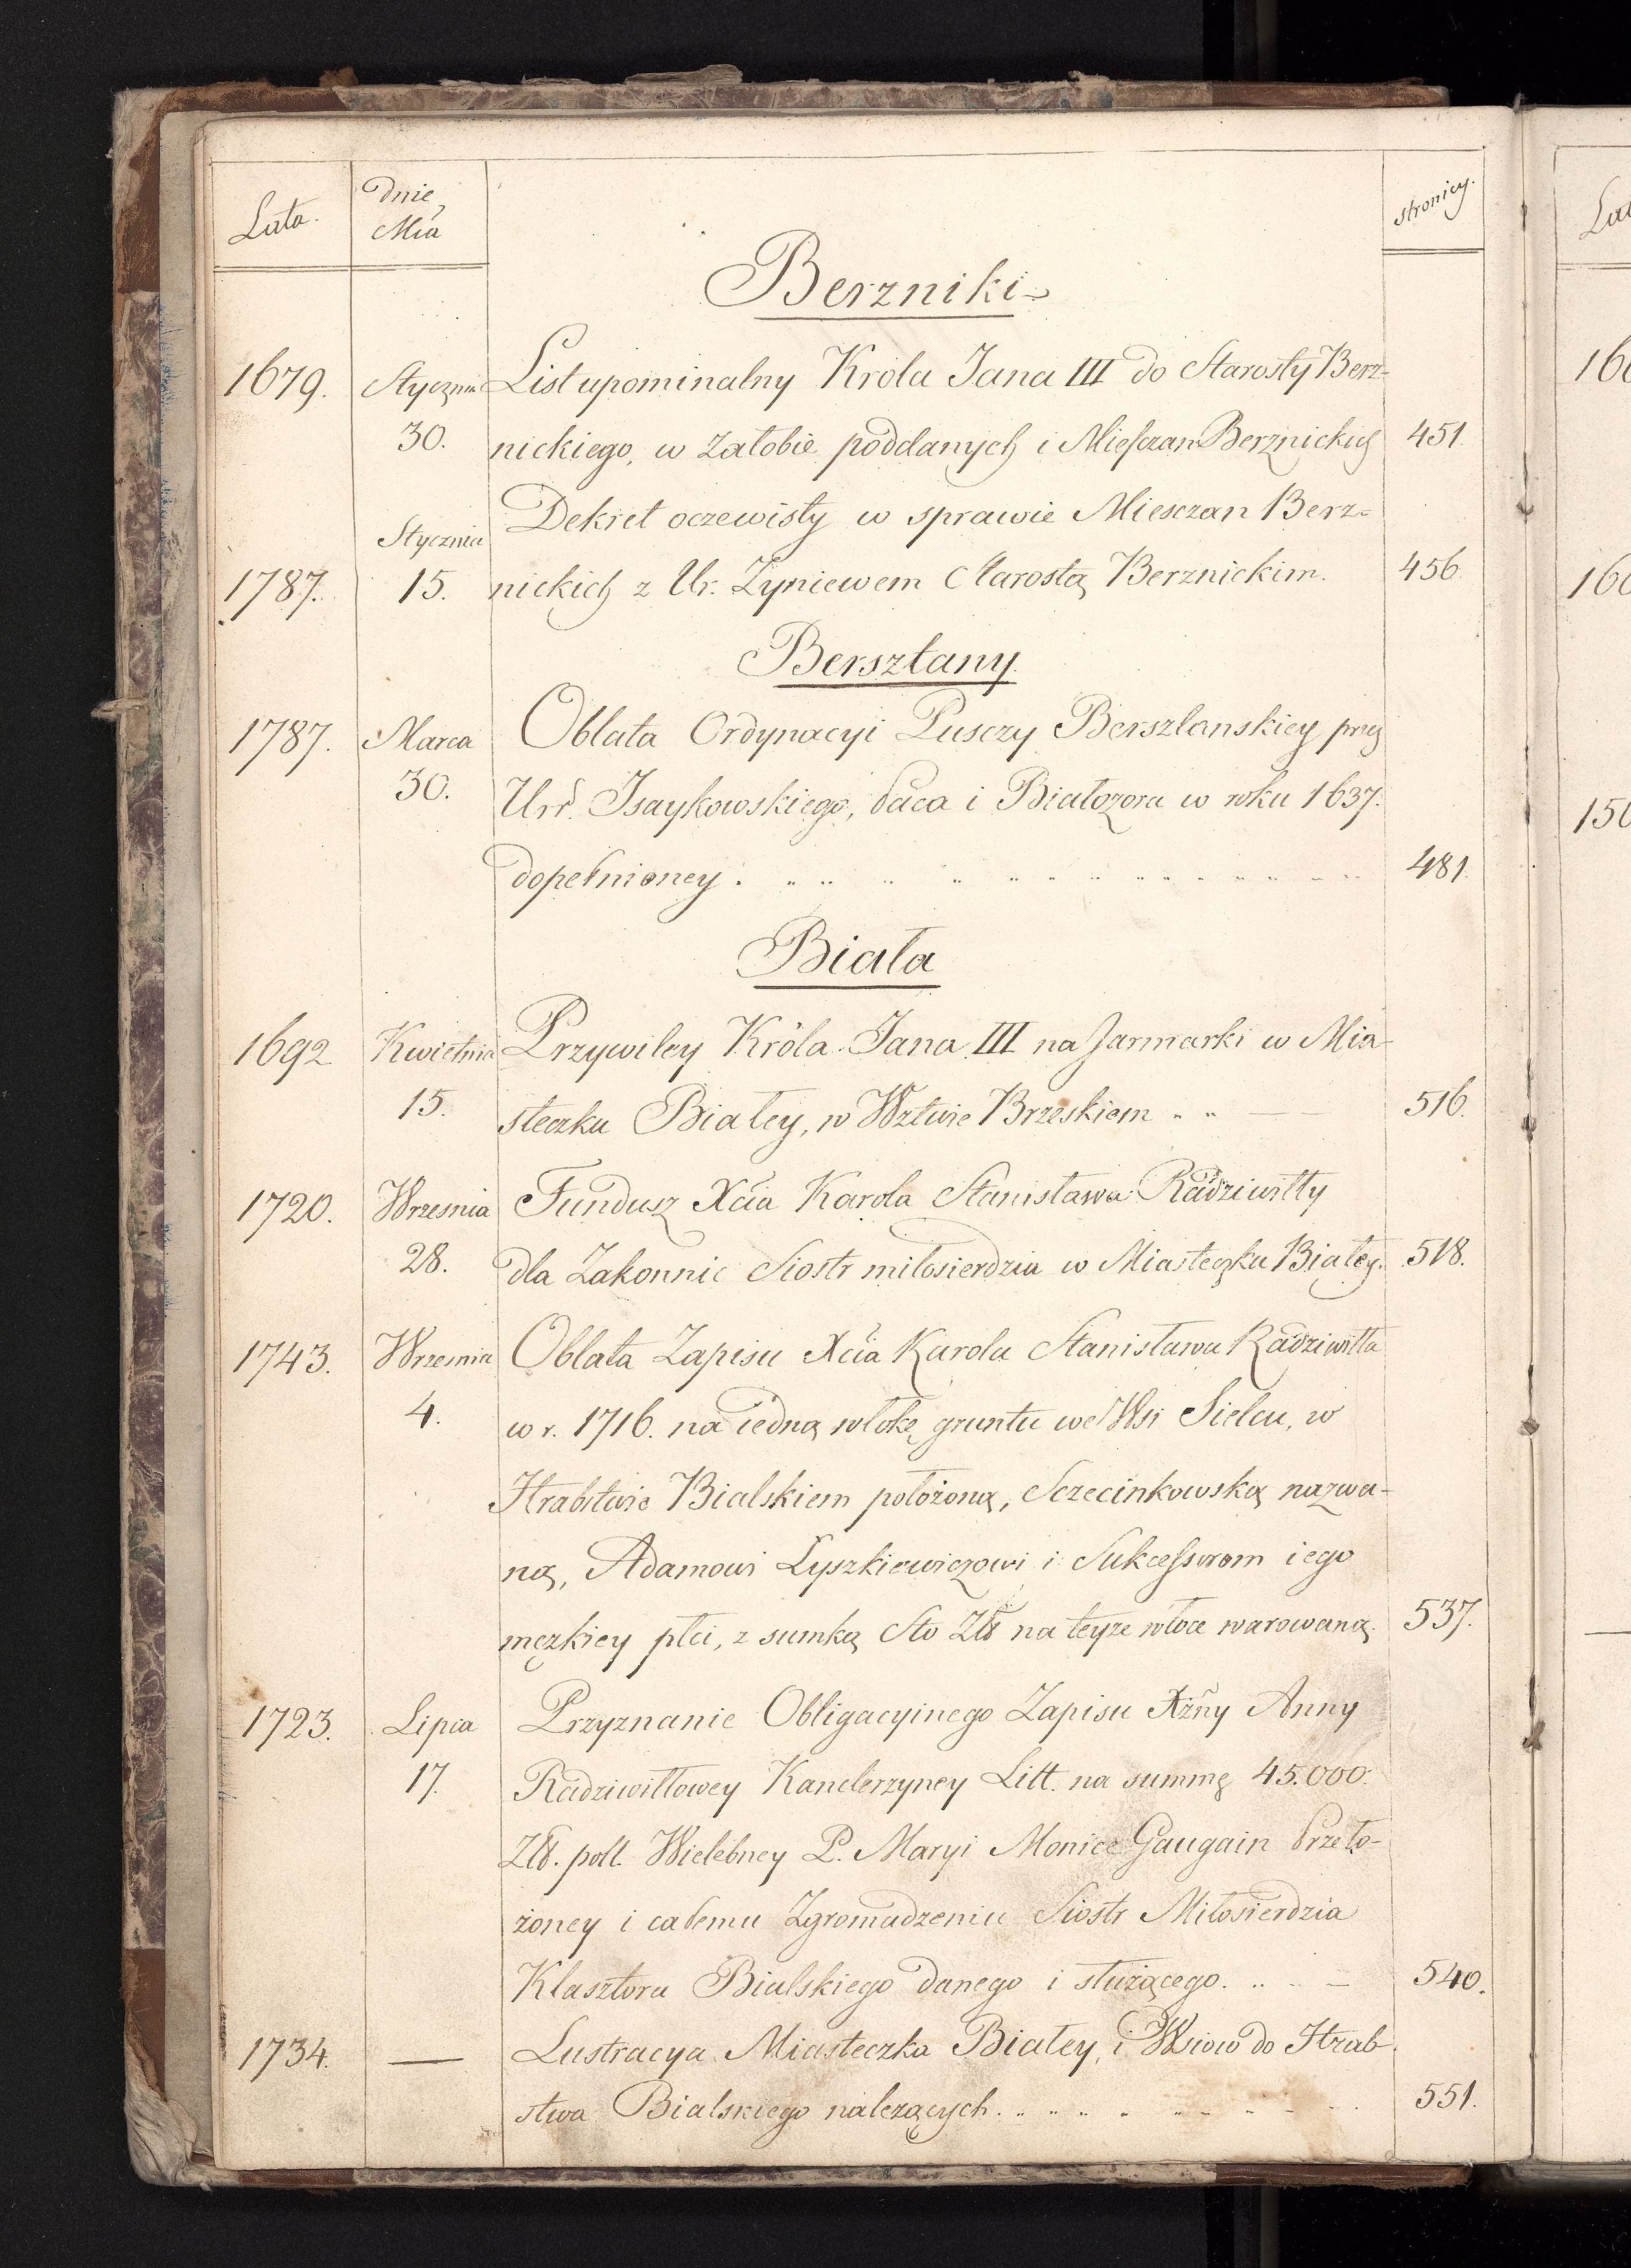 Lata.
dnie,
Mca
stronicy.
Berzniki
1679. Stycznia List upominalny Krola Jana III do Starosty Berz-
30. nickiego, w żałobie poddanych i Mieszczan Berznickich 451.
Stycznia Dekret oczewisty w sprawie Miesczan Berz-
1787. 15. nickich z Ur. Zyniewem Starostą Berznickim. 456.
Bersztany
1787. Marca Oblata Ordynacyi Pusczy Bersztanskiey przez
30. Urr. Isaykowskiego, Paca i Białozora w roku 1637.
dopełnioney 481.
Biała
1692 Kwietnia Przywiley Króla Jana III na Jarmarki w Mia-
15. steczku Białey, w Wztwie Brzeskiem 516.
1720. Wrzesnia Fundusz Xcia Karola Stanisława Radziwiłły
28. dla Zakonnic Siostr miłosierdzia w Miasteczku Białey. 518.
1743. Wrzesnia Oblata Zapisu Xcia Karola Stanisława Radziwiłła
4. w r. 1716. na iedną włokę gruntu we Wsi Sielcu, w
Hrabstwie Bialskiem położoną, Sczecinkowską nazwa-
ną, Adamowi Łyszkiewiczowi i Sukcessorom iego
męzkiey płci, z sumką Sto Zł na teyze włoce warowaną. 537.
1723. Lipca Przyznanie Obligacyinego Zapisu Xżny Anny
17. Radziwiłłowey Kanclerzyney Litt. na summę 45.000.
Zł. poll. Wielebney P. Maryi Monice Gaugain Przeło-
żoney i całemu Zgromadzeniu Siostr Miłosierdzia
Klasztoru Bialskiego danego i służącego. 540.
1734. — Lustracya Miasteczka Białey, i Wsiow do Hrab-
stwa Bialskiego należących. 551.